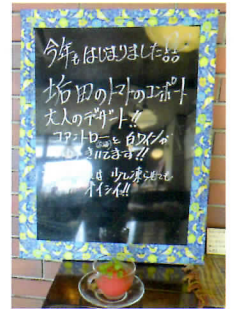 今年もはじまりました
垢田のトマトのコンポート
大人のデザート!!
コアントローと白ワインが
きいてます!!
は少し凍らせても
オイシイ!!